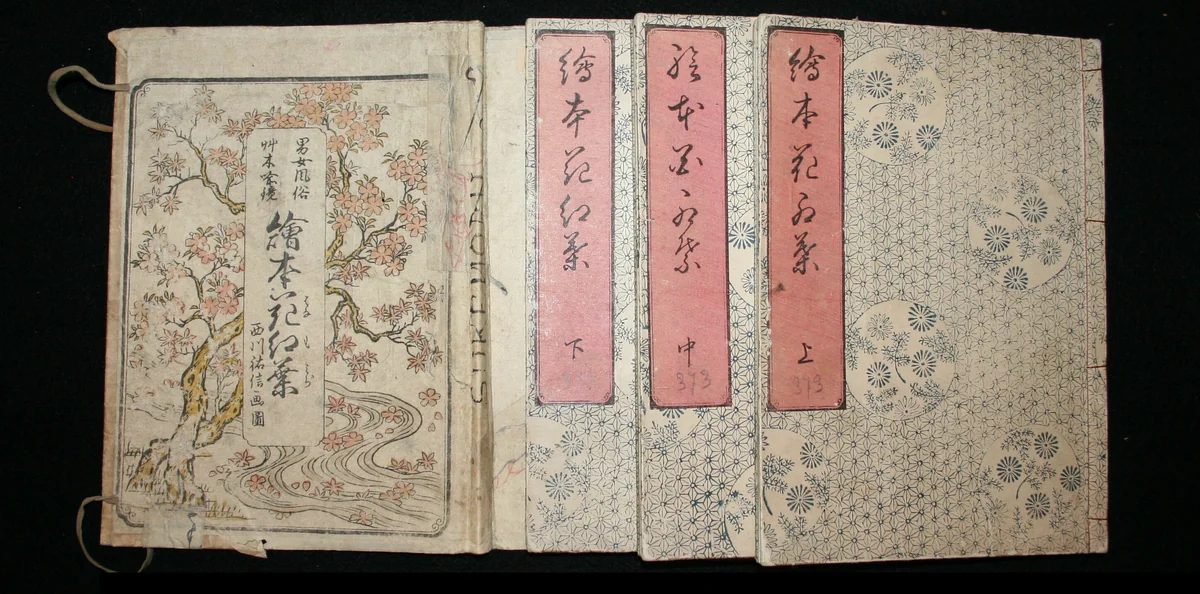 繪本花紅葉
上
373
絵本花紅葉
中
373
繪本花紅葉
下
男女風俗
艸木
繪本花紅葉
西川祐信画圖